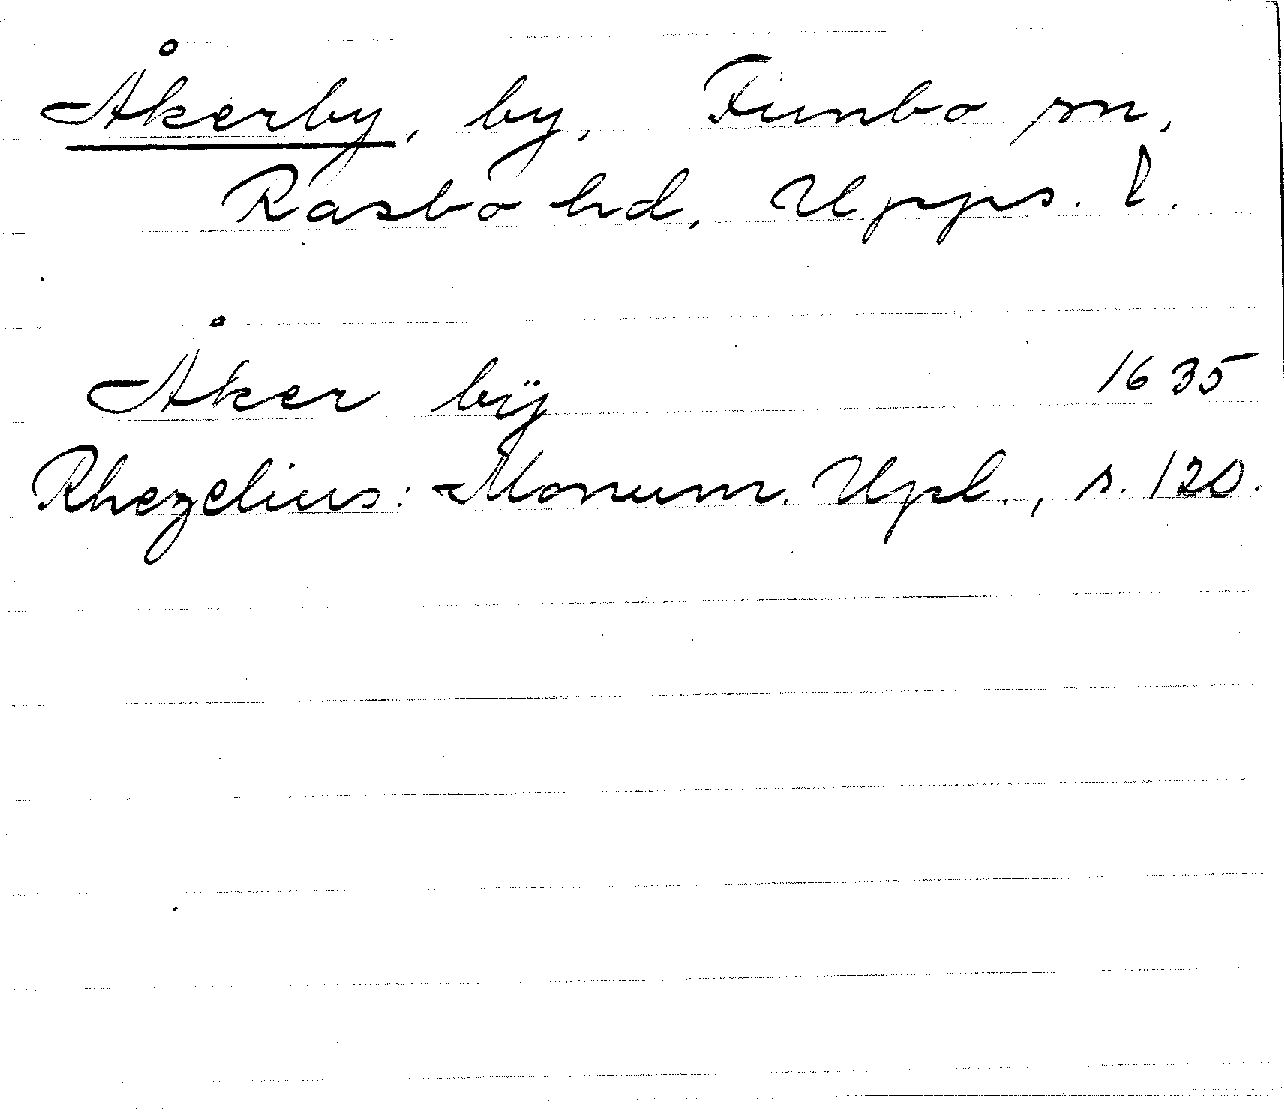 Åkerby, by, Funbo sn,
Rasbo hd, Upps. l.
Åker bÿ 1635
Rhezelius: Monum. Upl., s. 120.